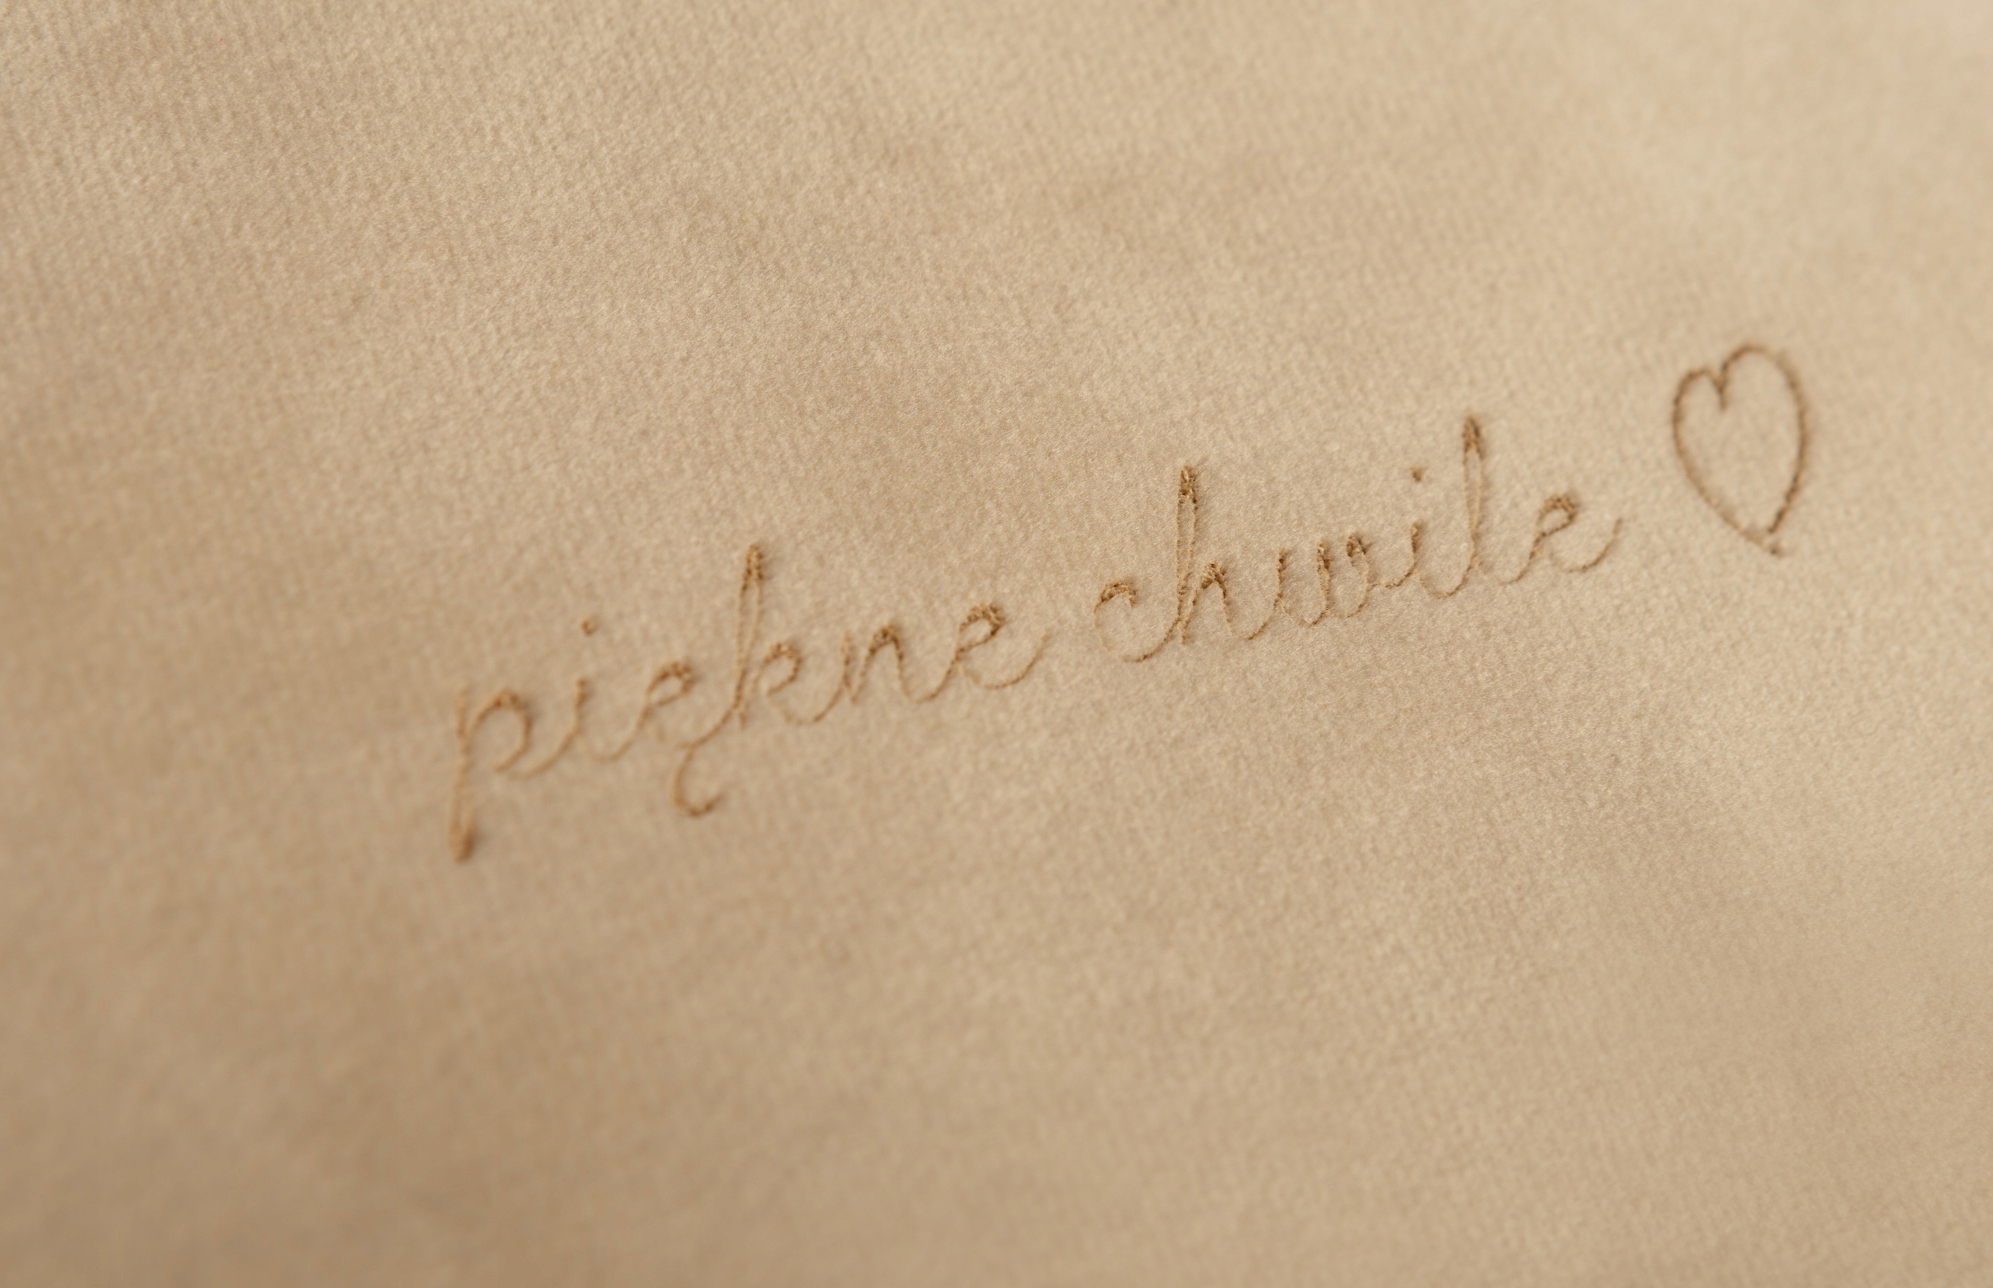 piękne chwile ♡